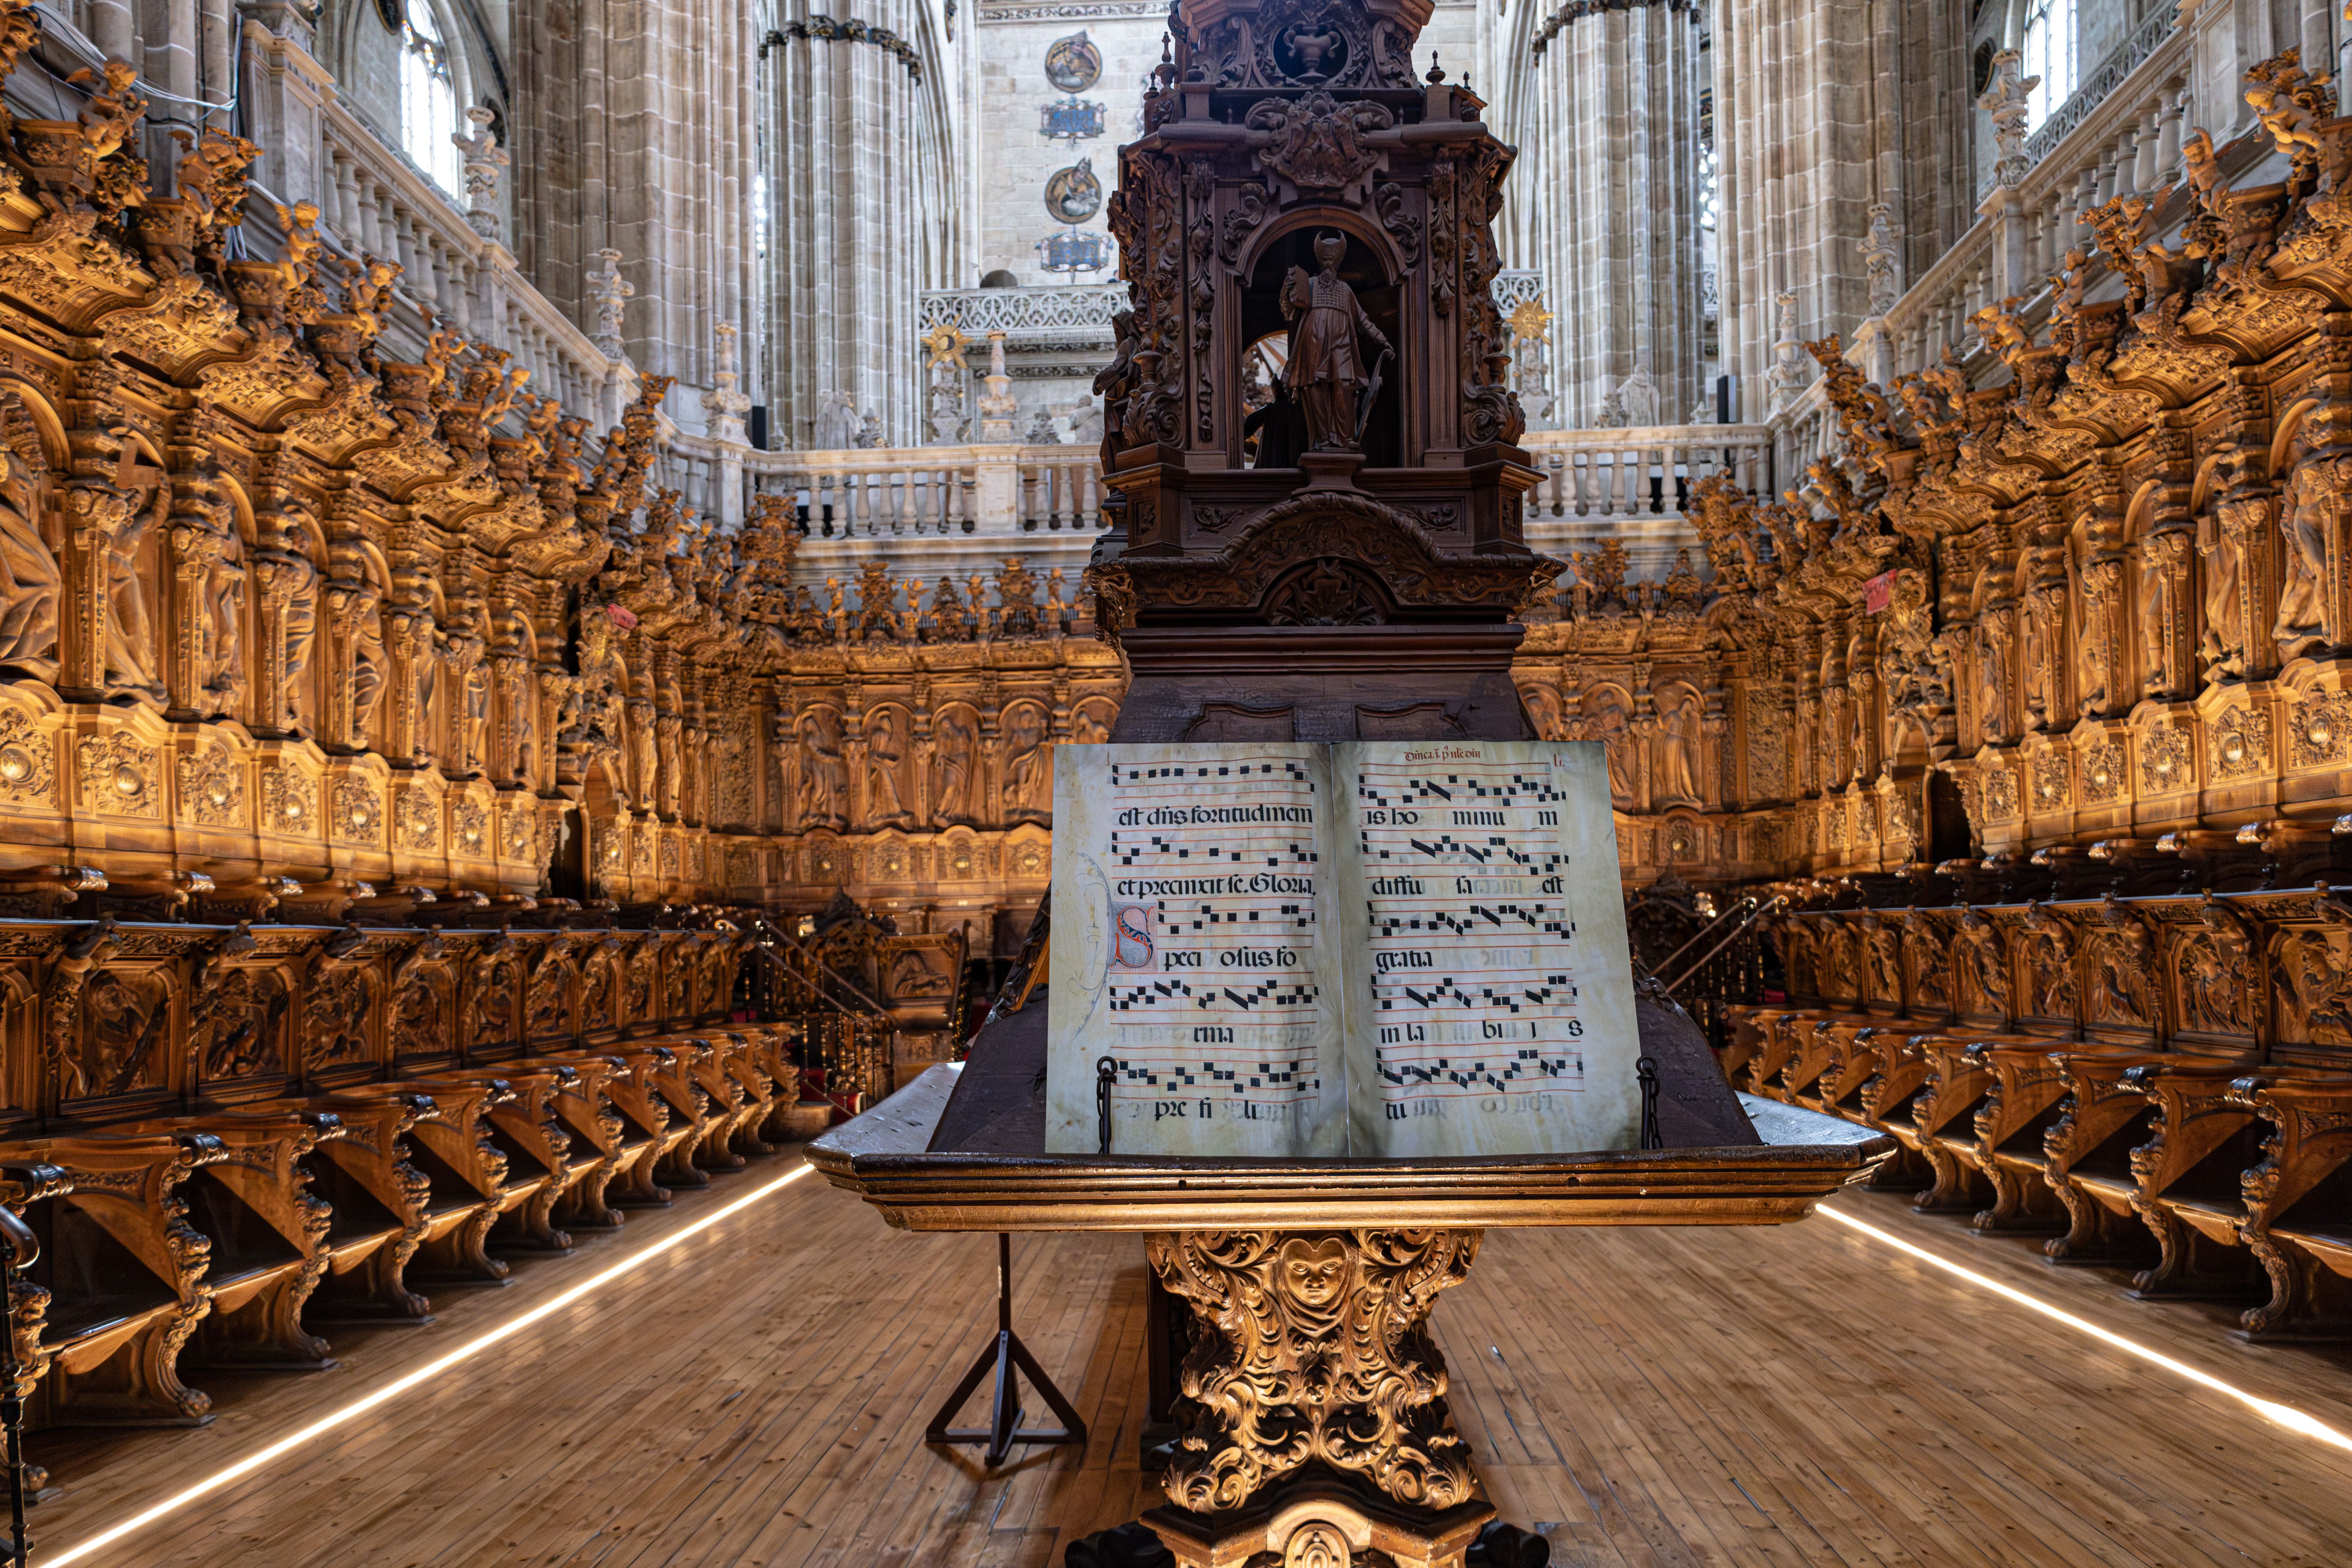 est dñs fortitudinem
et precinxit se. Gloria.
Speci osus fo
rma
pre fi li
is ho minu m
diffu sa est
gratia
in la bi i s
tu